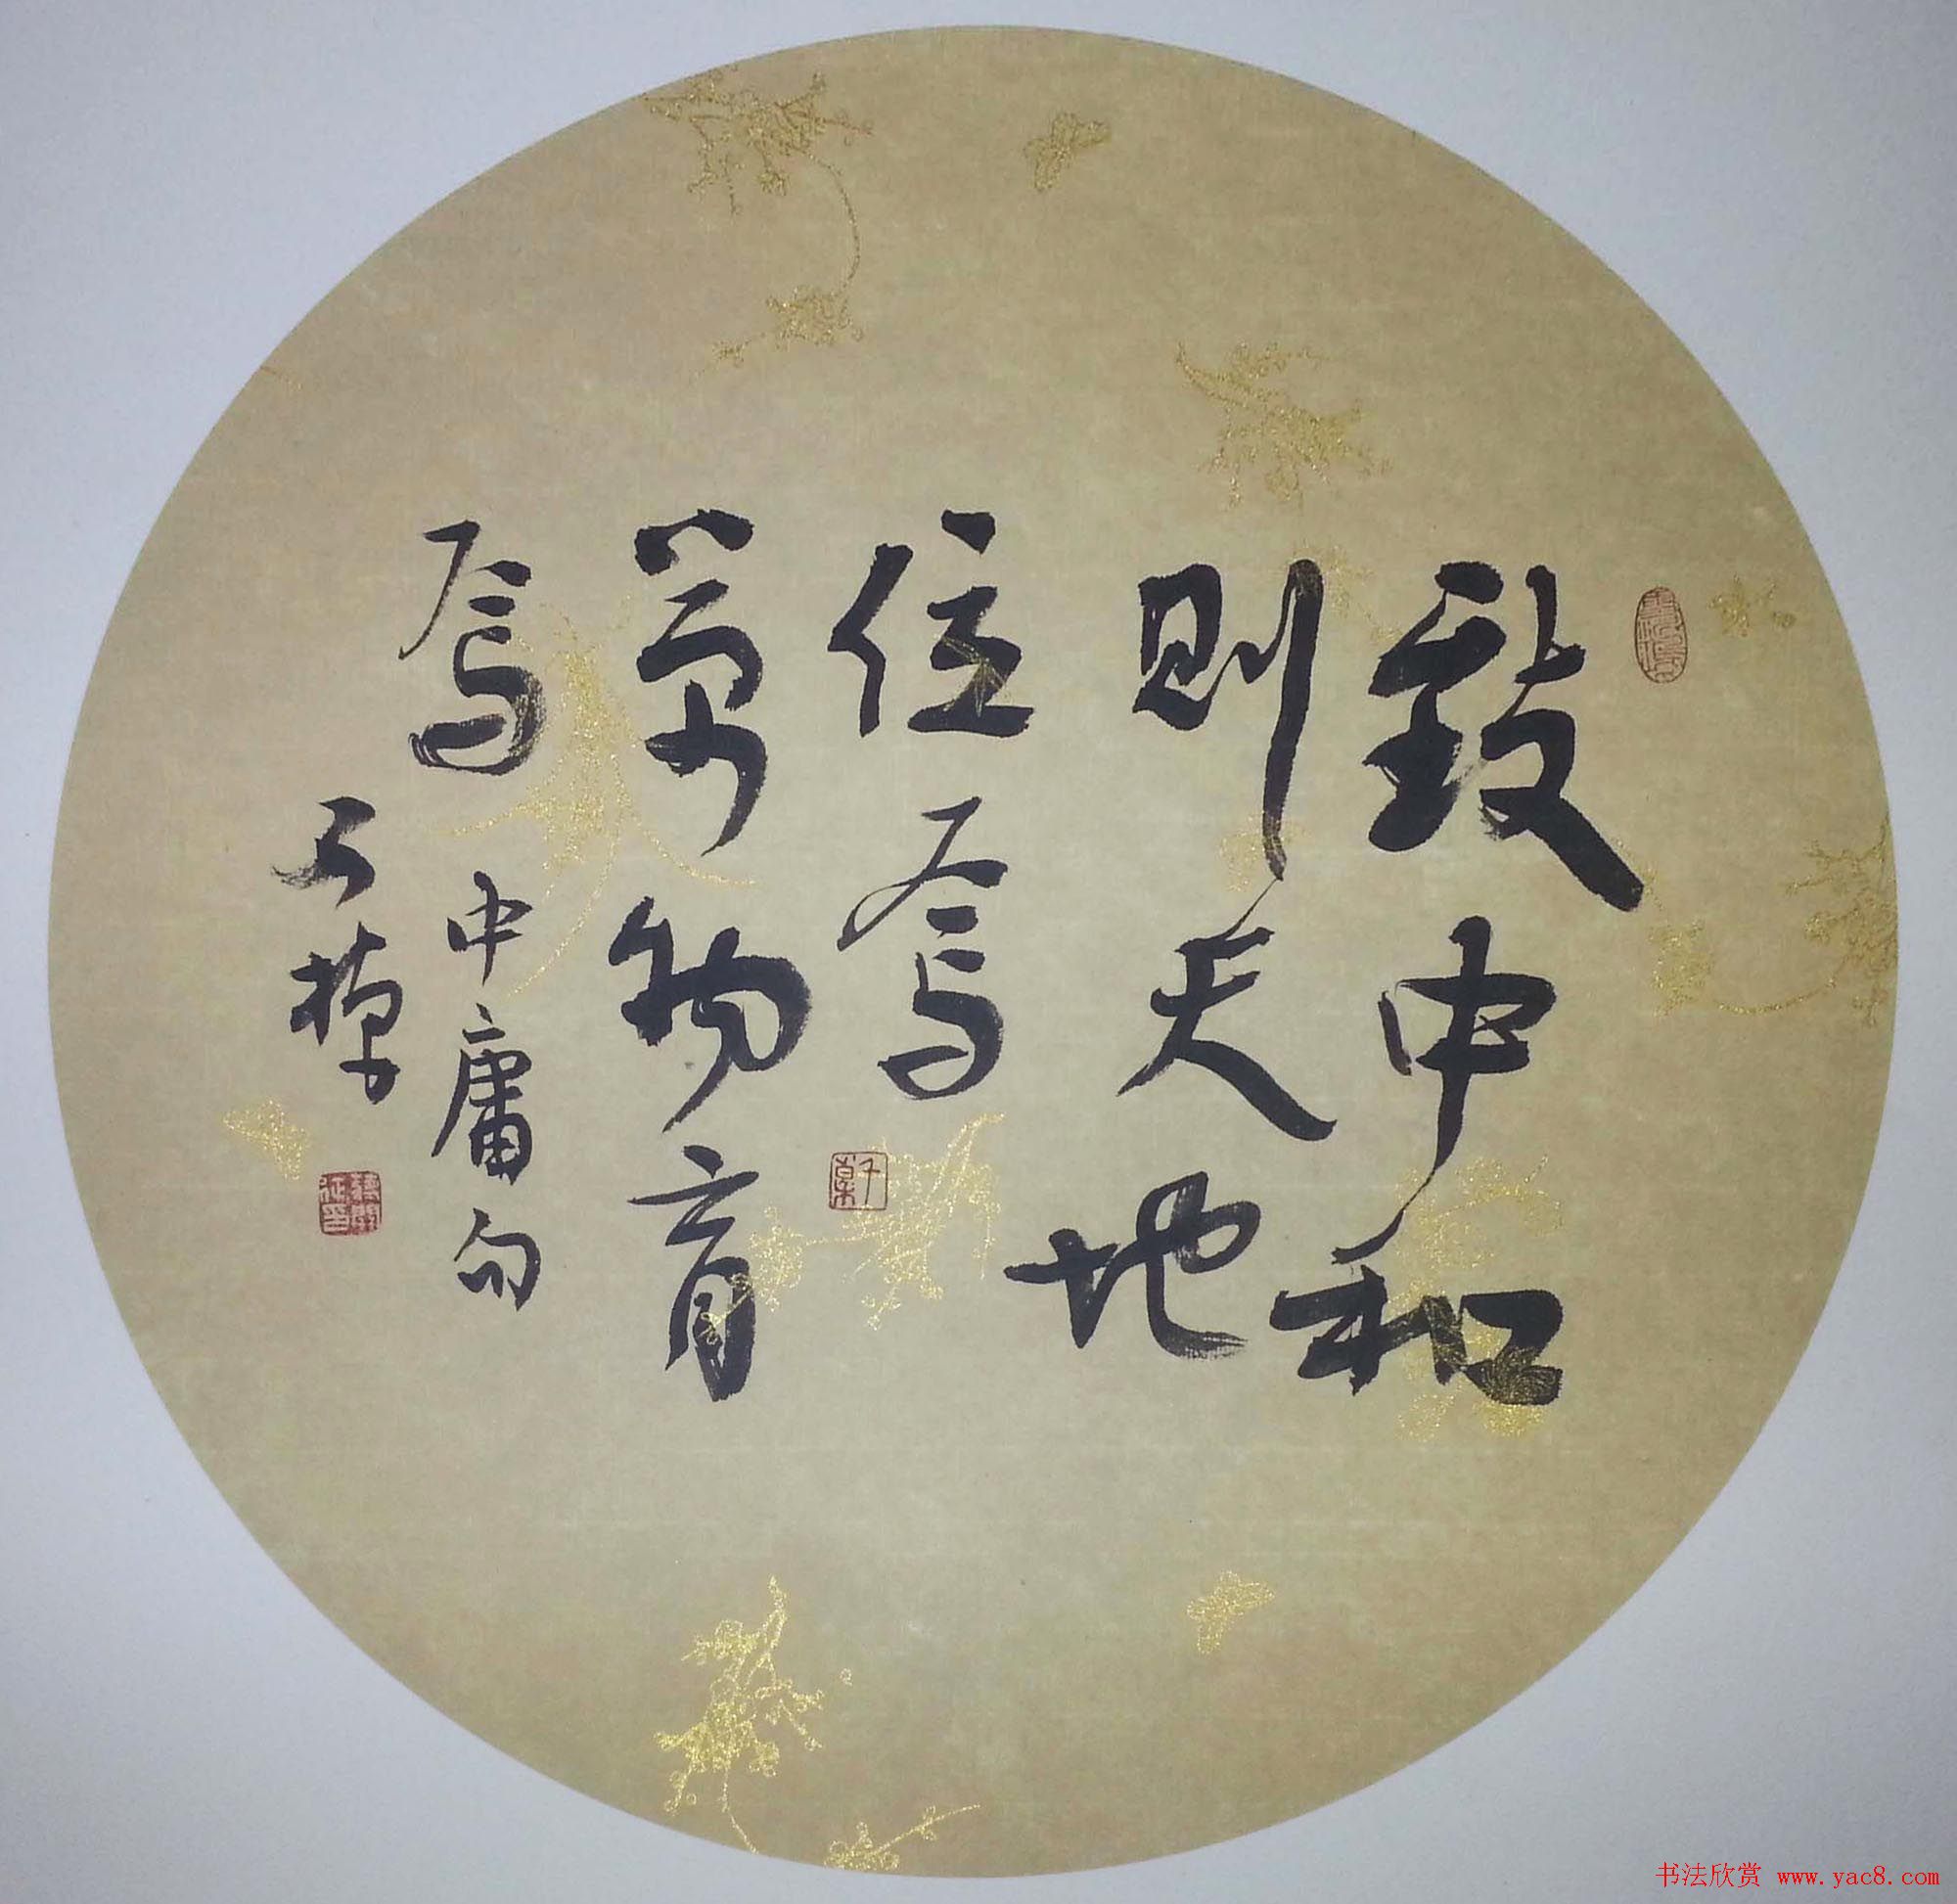 致中和
則天地
位焉
萬物育
焉 中庸句
书法欣赏 www.yac8.com